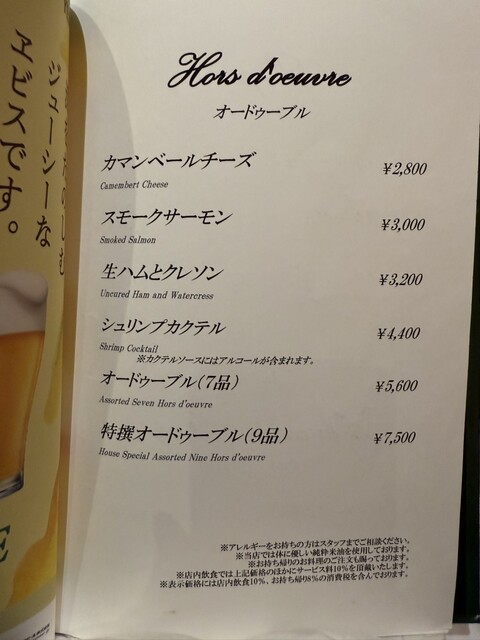 ジューシーな
ヱビスです。
Hors d'oeuvre
オードゥーブル
カマンベールチーズ ¥2,800
Camembert Cheese
スモークサーモン ¥3,000
Smoked Salmon
生ハムとクレソン ¥3,200
Uncured Ham and Watercress
シュリンプカクテル ¥4,400
Shrimp Cocktail
※カクテルソースにはアルコールが含まれます。
オードゥーブル(7品) ¥5,600
Assorted Seven Hors d'oeuvre
特撰オードゥーブル(9品) ¥7,500
House Special Assorted Nine Hors d'oeuvre
※アレルギーをお持ちの方はスタッフまでご相談ください。
※当店では体に優しい純粋米油を使用しております。
※お持ち帰りのお料理のご注文も賜っております。
※店内飲食では上記価格のほかにサービス料10%を頂戴いたします。
※表示価格には店内飲食10%、お持ち帰り8%の消費税を含んでおります。